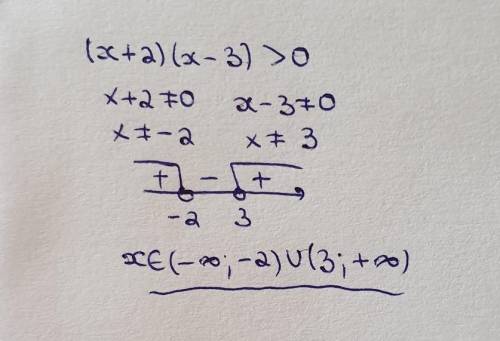 (x+2)(x-3)>0
x+2≠0 x-3≠0
x≠-2 x≠3
+ - +
-2 3
x∈(-∞;-2)∪(3;+∞)